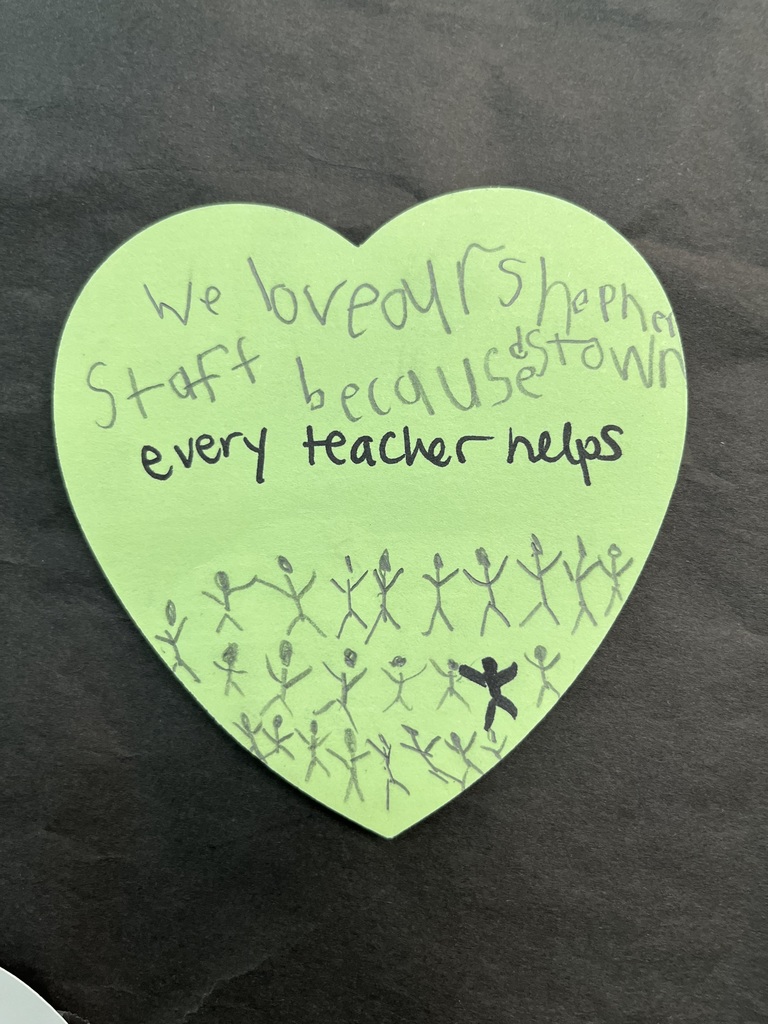 We love our Shepher
dstown
Staff because
every teacher helps